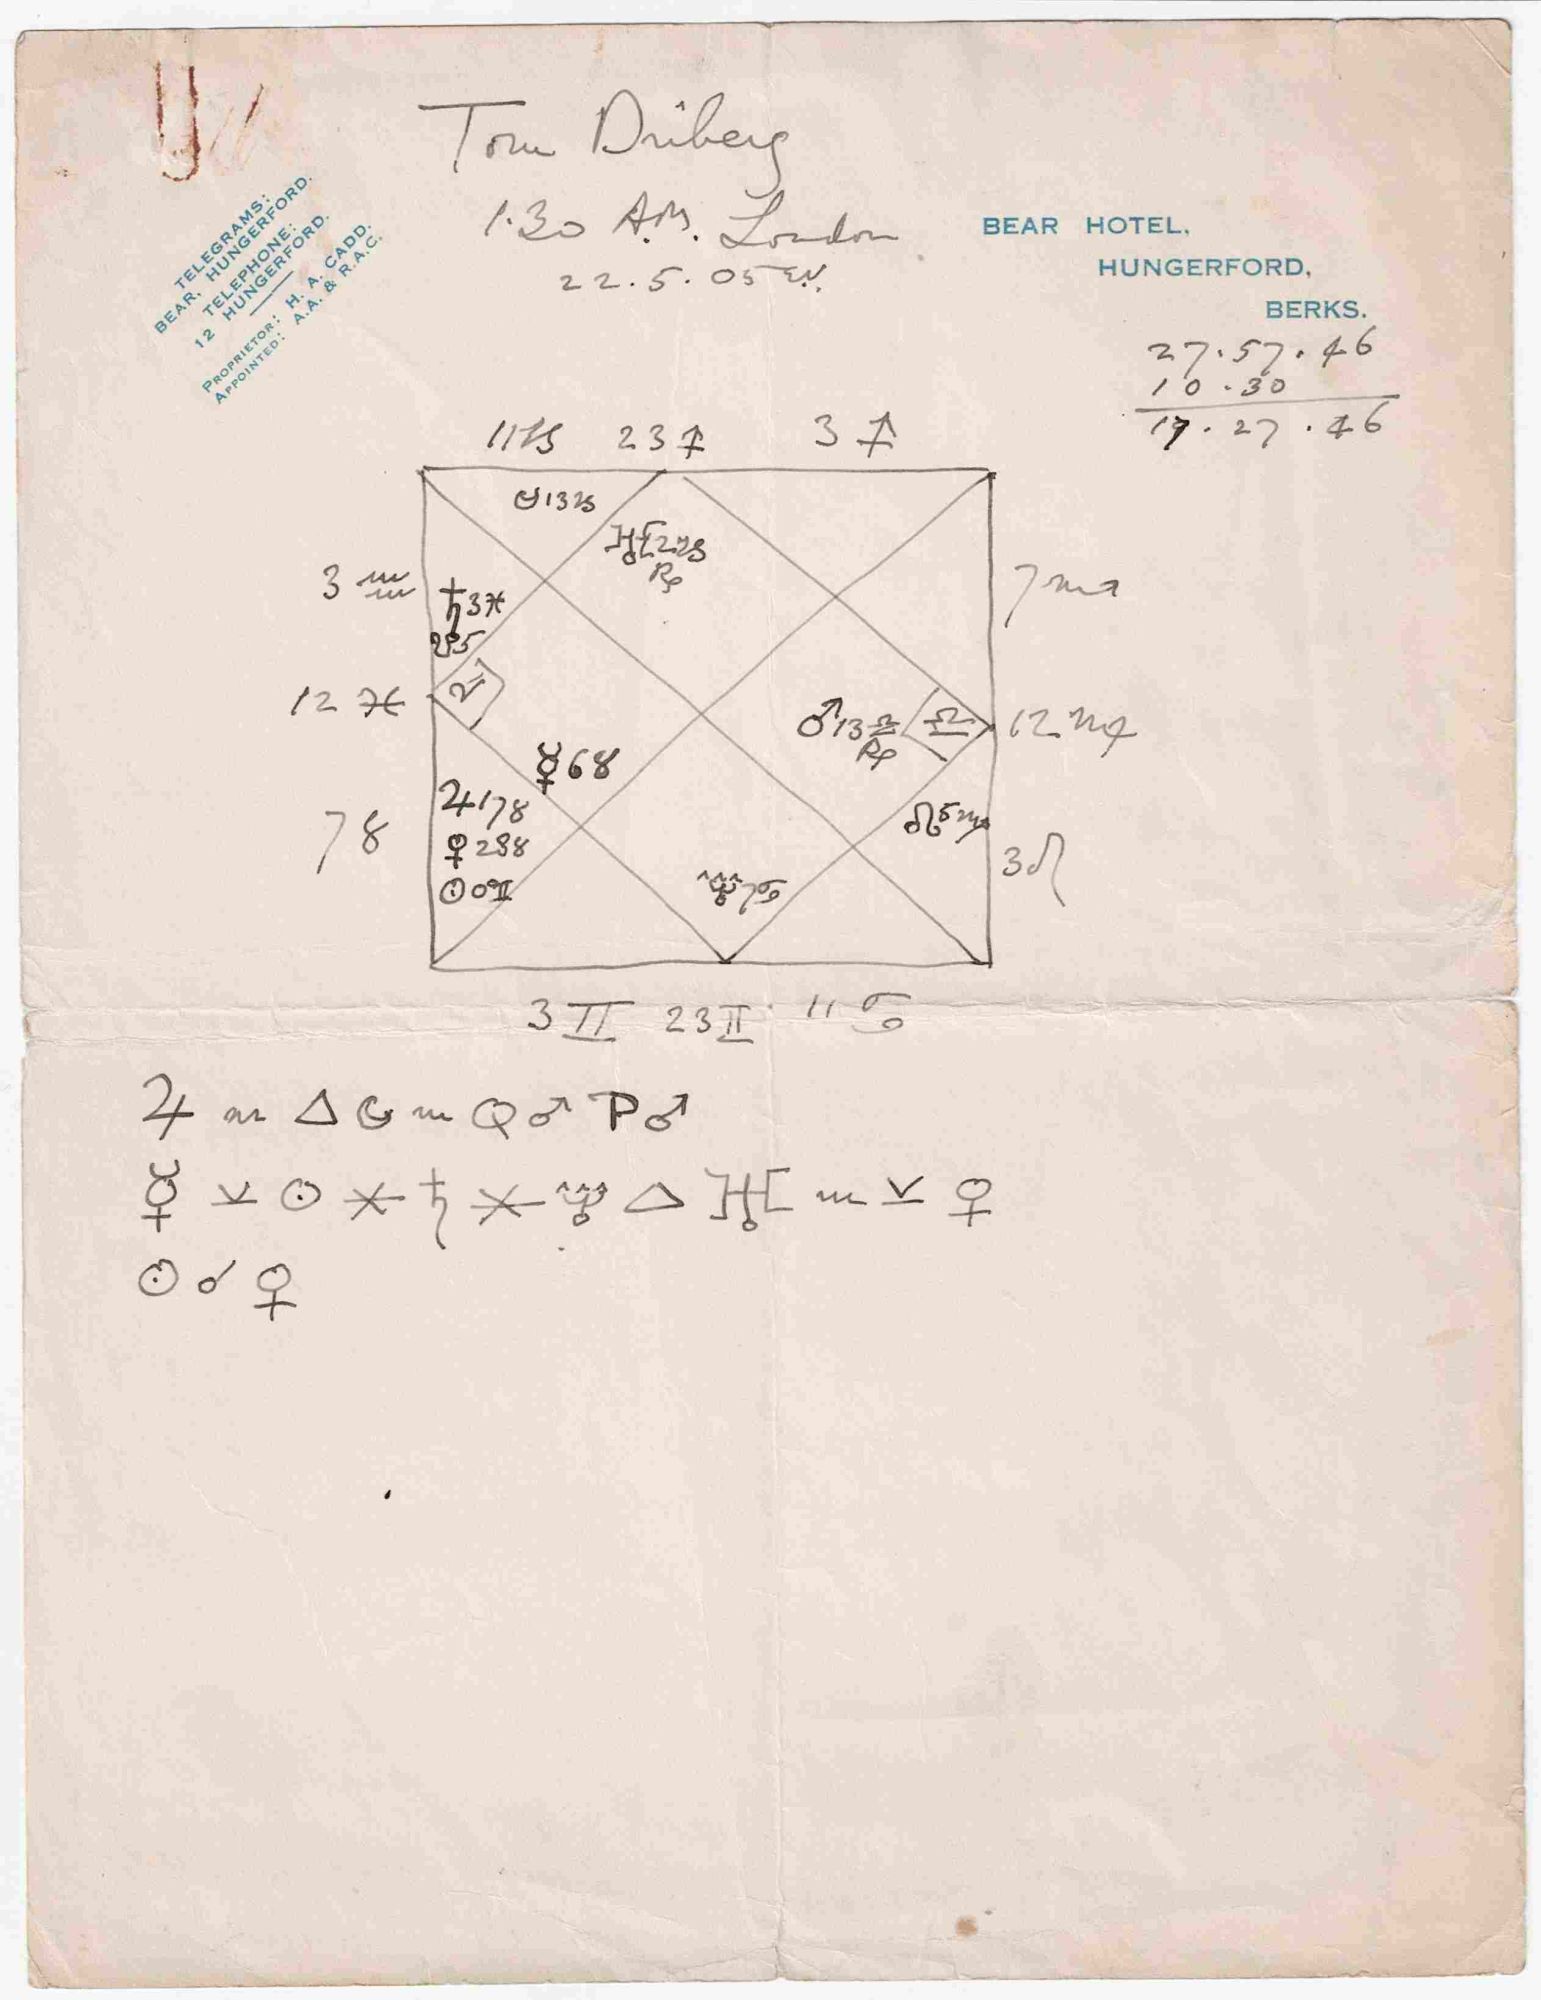 Tom Driberg
1.30 A.M. London
22.5.05 E.V.
TELEGRAMS:
BEAR, HUNGERFORD.
TELEPHONE:
12 HUNGERFORD.
PROPRIETOR: H. A. CADD.
APPOINTED: A.A. & R.A.C.
BEAR HOTEL,
HUNGERFORD,
BERKS.
27.57.46
10.30
17.27.46
11♑ 23♐ 3♐
☽13♑
♅22♑
℞
3♒
♄3♓
☋5
7♏
12♓
♈
♂13♎
℞
♎
12♍
☿6♉
7♉
♃17♉
♀28♉
☉0♊
☊5♍
♆7♋
3♌
3♊ 23♊ 11♋
♃ m △ ☾ m Q ♂ P ♂
☿ ⚺ ☉ ⚹ ♄ ⚹ ♆ △ ♅ m ⚺ ♀
☉ ☌ ♀